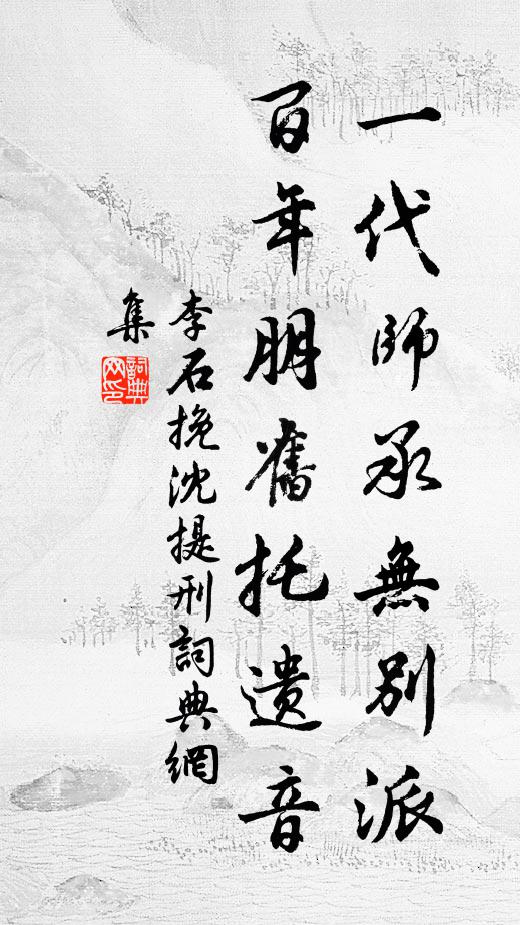 一代師承無別派
百年朋舊托遗音
李石挽沈提刑詞典網
集
詞典網印